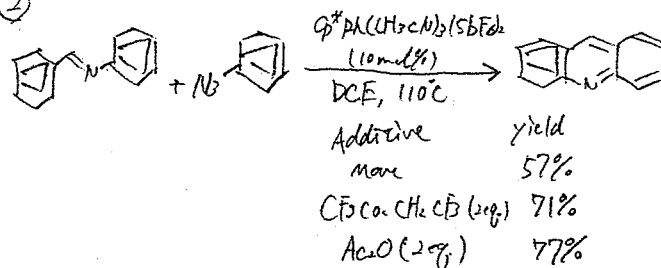 2
Cp*Rh(CH3CN)3(SbF6)2
(10mol%)
N + N3
DCE, 110°C
N
Additive yield
none 57%
CF3CO2CH2CF3 (2eq.) 71%
Ac2O (2eq.) 77%